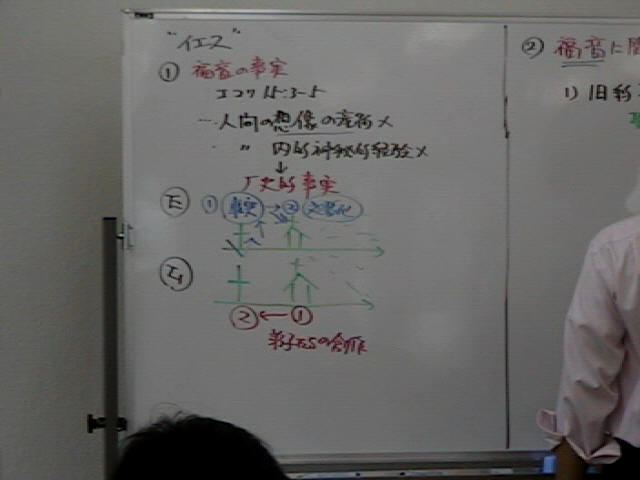 "イエス"
① 福音の事実
Iコリ 15:3-5
…人間の想像の産物×
〃 内的神秘的経験×
↓
歴史的事実
E ① 事実 → ② 文書化
② ← ①
弟子たちの創作
② 福音に
1) 旧約